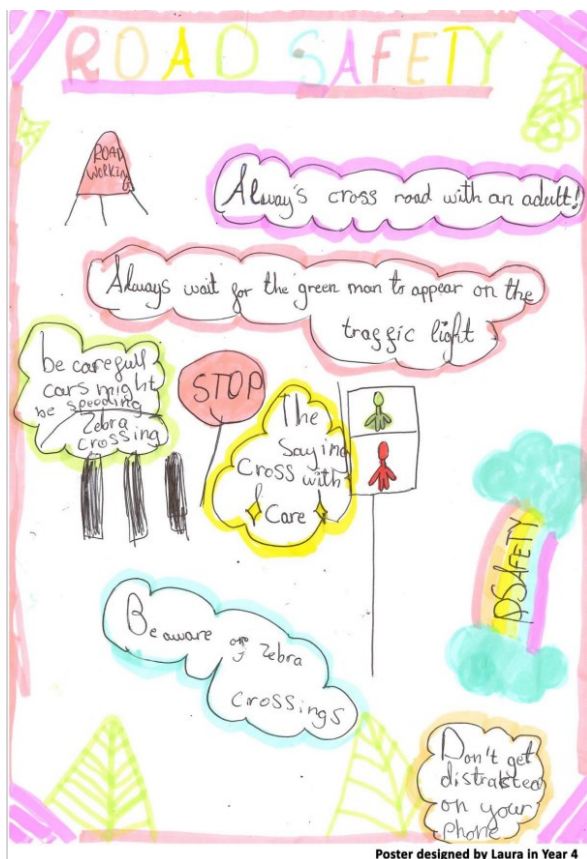 ROAD SAFETY
ROAD
WORKING
Alway's cross road with an adult!
Always wait for the green man to appear on the
traffic light
be carefull
cars might
be speeding
Zebra
crossing
STOP
The
Saying
Cross with
Care
SAFETY
Be aware of Zebra
crossings
Don't get
distracted
on your
phone
Poster designed by Laura in Year 4